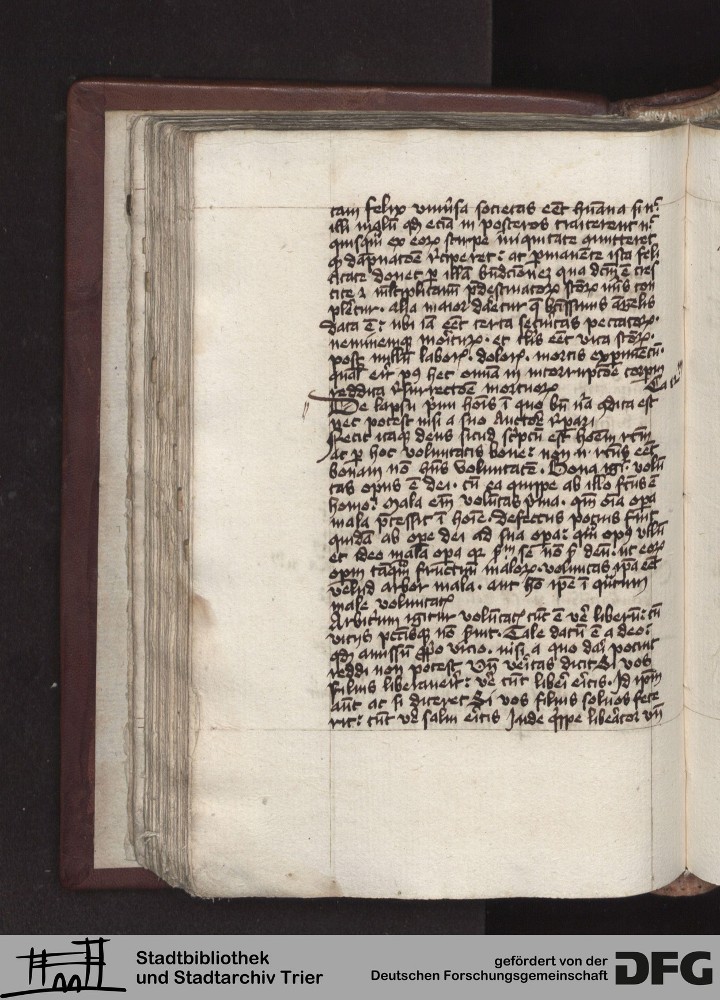 tam felix vniu̅sa societas ee̅t hu̅ana si n̅
illi malu̅ qd̅ ecia̅ in posteros traicerent n̅
quisqua̅ ex eoru̅ stirpe iniquitate committeret
q̅ da̅pnatoe̅ reciperet : ac p̅mane̅te ista feli
citate donec p̅ illa̅ bn̅dictione̅ qua dc̅m e̅ cres
cite ⁊ m̅ltiplicamini p̅destinatoru̅ sc̅oru̅ nu̅s con
pleretur . alia maior daretur que bt̅issimis angelis
data e̅ : ubi ia̅ ee̅t certa securitas peccaturu̅ .
neminemque morituru̅ . et talis ee̅t vita sc̅oru̅ .
post nullu̅ laboris . doloris . mortis experime̅tu̅ .
qualis erit post hec omnia in incorruptoe̅ corporu̅
reddita resurrectoe̅ mortuoru̅
De lapsu primi hois̅ i̅ quo bn̅ na̅ condita est
nec potest nisi a suo auctore repari
Fecit itaque deus sicud sc̅ptu̅ est hoie̅m rectu̅
ac p̅ hoc voluntatis bone : non n̅ rectus ee̅t
bonam no̅ hn̅s voluntate̅ . Bona igit̅ volu̅
tas opus e̅ dei . cu̅ ea quippe ab illo fc̅us e̅
homo : Mala em̅ volu̅tas p̅ma . qm̅ oi̅a opa̅
mala p̅cessit i̅ hoi̅e . defectus pocius fuit
quida̅ ab ope̅ dei ad sua opa̅ : qua̅ opus ullu̅
et ideo mala opa̅ quia s̅m se no̅ s̅m deu̅ . ut eoru̅
opm̅ ta̅qua̅ fructuu̅ maloru̅ . voluntas ipa̅ ee̅t
velud arbor mala . aut ho̅ ip̅e i̅ qua̅tum
male voluntatis
Arbitriu̅ igitur volu̅tatis tu̅c e̅ ve̅ liberu̅ : cu̅
viciis peccatisque no̅ s̅uit . Tale datu̅ e̅ a deo :
qd̅ amissu̅ p̅prio vicio . nisi a quo dari potuit
reddi non potest Vn̅ veritas dicit Si vos
filius liberauerit : ve̅ tu̅c liberi eritis . Id ipm̅
au̅t ac si diceret Si vos filius saluos fece
rit : tu̅c ve̅ salui eritis Inde q̅ppe liberator vn̅
Stadtbibliothek
und Stadtarchiv Trier
gefördert von der
Deutschen Forschungsgemeinschaft
DFG